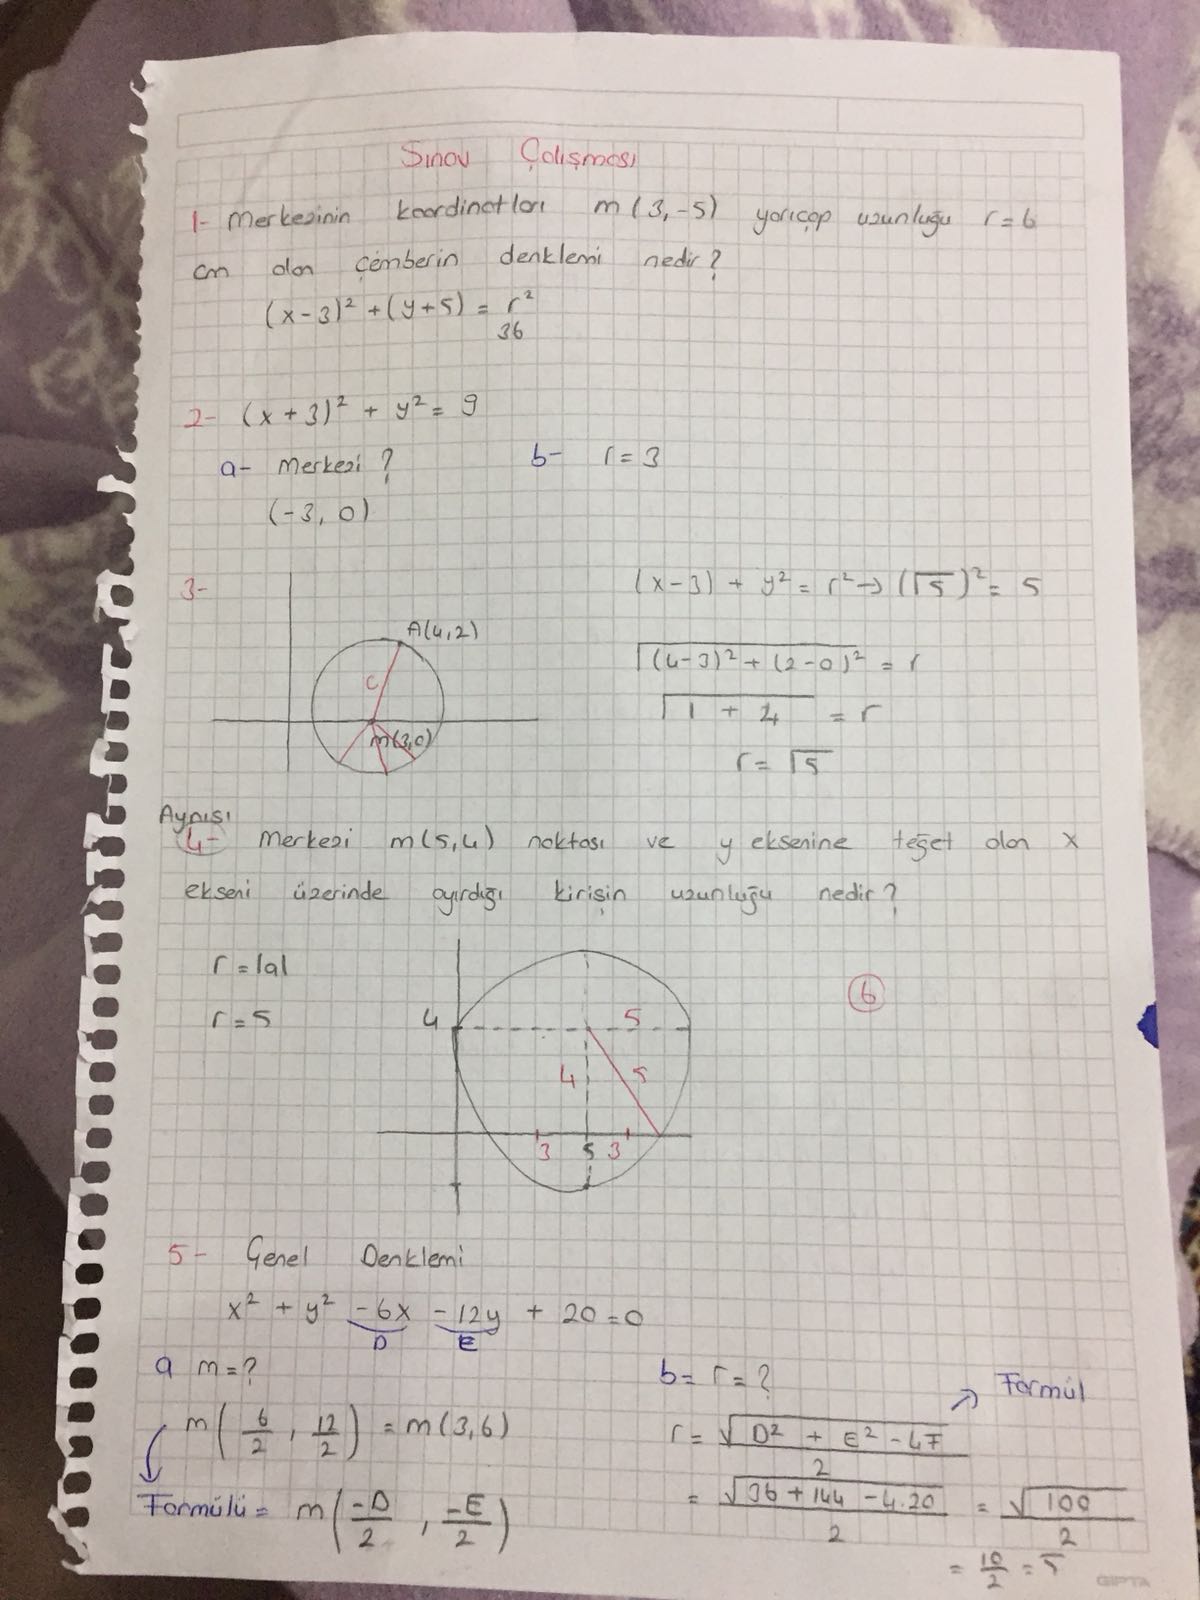 Sınav Çalışması
1- Merkezinin koordinatları m(3,-5) yarıçap uzunluğu r=6
cm olan çemberin denklemi nedir?
(x-3)² + (y+5) = r²
36
2- (x+3)² + y² = 9
a- Merkezi ?
b- r=3
(-3, 0)
3-
(x-3) + y² = r² → (√5)² = 5
A(4,2)
√(4-3)² + (2-0)² = r
√1 + 4 = r
m(3,0)
r = √5
Aynısı
4- Merkezi m(5,4) noktası ve y eksenine teğet olan x
ekseni üzerinde ayırdığı kirişin uzunluğu nedir?
r = |a|
6
r = 5
4
5
4
5
3 5 3
5- Genel Denklemi
x² + y² -6x -12y + 20 = 0
D E
a m=?
b= r=?
Formül
m(6/2, 12/2) = m(3,6)
r = √D² + E² - 4F / 2
= √36 + 144 - 4.20 / 2 = √100 / 2
Formülü = m(-D/2, -E/2)
= 10/2 = 5
GIPTA